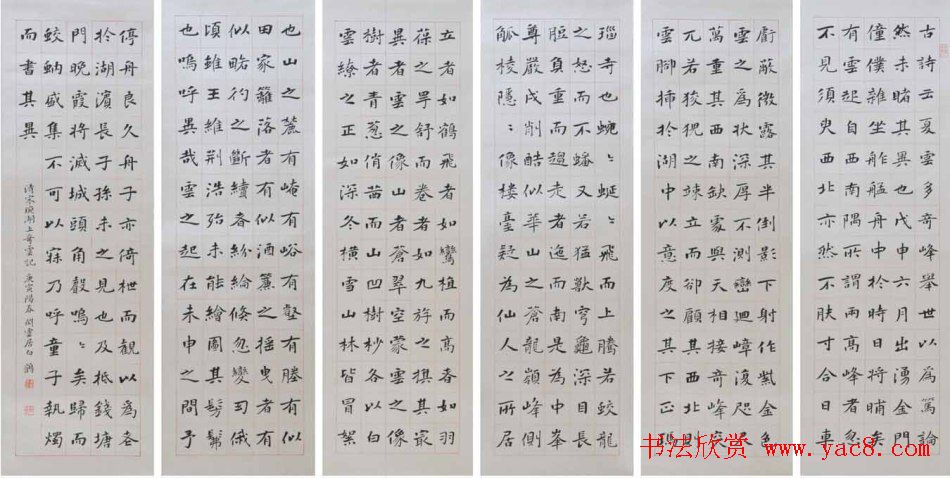 古詩云夏雲多奇峰世以為篤論
然未睹其異也戊申六月出湧金門
僮僕雜坐船艫舟中於時日將晡矣
有雲起自西南隅所謂兩高峰者忽
不見須臾西北亦然不膚寸而合日車
虧蔽微露其半倒影下射作紫金色
雲之為狀深厚不測巒迴嶂複咫尺
萬重其西南缺處與天相接奇峰突
兀若狻猊之竦立而顧其西北則
雲腳插於湖中以意度之其下正碼
瑙寺也蜿々蜒々飛而上騰若蛟龍
之怒而蟠又若猛獸穹龜深目長
脰負重而趨走者迤南是為中峯
尊嚴戌削酷似華山之蒼龍嶺峰側
觚棱隱々像樓臺疑為仙人之所居
立者如鶴飛者如鸞植而高者如羽
葆之舒而卷者如九斿之旗其冢
異者雲之像山者蒼翠空蒙雲之像
樹者青蔥俏茜而山凹樹杪各以白
雲繚之正如深冬橫雪山林皆冒絮
也山之麓有崦有峪有壑有塍有似
田家籬落者有似酒簾之搖曳者有
似略彴之斷續者紛綸倏忽變幻俄
頃雖王維荊浩殆未能繪圖其髣髴
也嗚呼異哉雲之起在未申之間予
停舟良久舟子亦倚枻而觀以為吾
於湖濱長子孫未之見也及抵錢塘
門晚霞將滅城頭角聲嗚々矣歸而
蛟蚋盛集不可以寐乃呼童子執燭
而書其異
清宋琬湖上奇雲記 庚寅陽春 閒雲居白鶴
书法欣赏 www.yac8.com